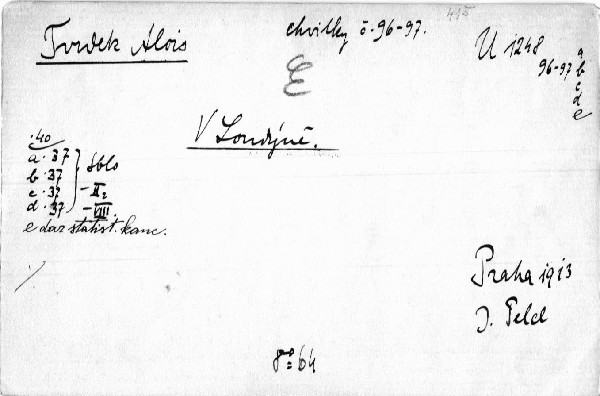 Tvrdek Alois
chvilky č. 96-97.
415
U 1248
96-97 a
b
c
d
e
E
V Londýně.
.40
a. 37
b. 37
c. 37
d. 37
šblo
-II2
-VIII.
e dar statist. kanc.
Praha 1913
J. Pelcl
8° 64